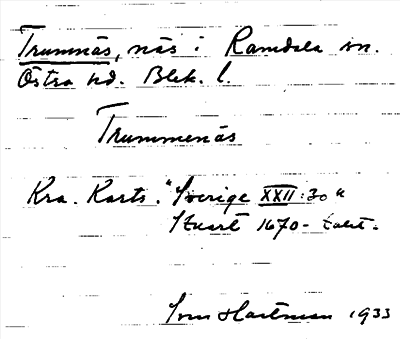 Trumnäs, näs i Ramdala sn.
Östra hd. Blek. l.
Trummenäs
Kra. Karts. "Sverige XXII:30"
Stuart 1670-talet.
Sven Hartman 1933